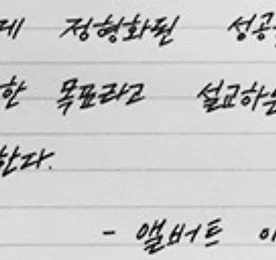 데 정형화된 성공
한 목표라고 설교하는
한다.
- 앨버트 아